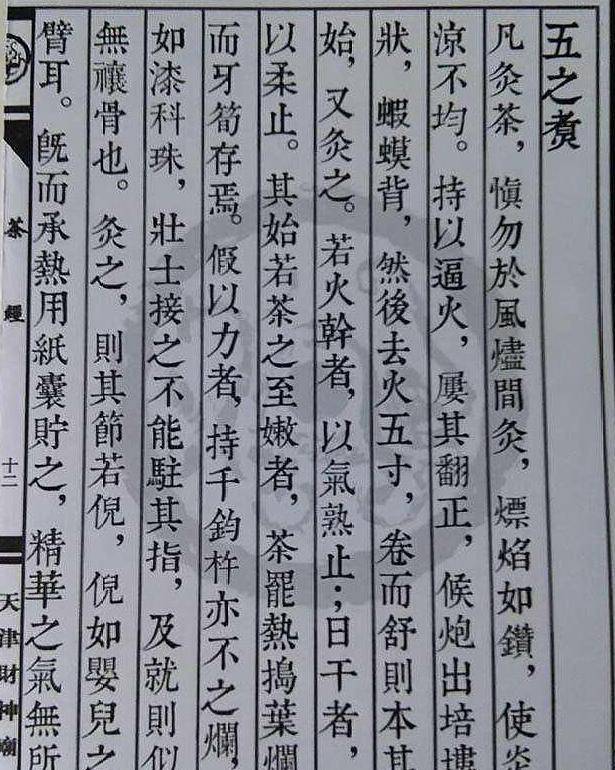 五之煑
凡灸茶，慎勿於風燼間灸，熛焰如鑽，使炎
涼不均。持以逼火，屢其翻正，候炮出培塿
狀，蝦蟆背，然後去火五寸，卷而舒則本其
始，又灸之。若火幹者，以氣熟止；日干者，
以柔止。其始若茶之至嫩者，茶罷熱搗葉爛
而牙筍存焉。假以力者，持千鈞杵亦不之爛，
如漆科珠，壯士接之不能駐其指，及就則似
無禳骨也。灸之，則其節若倪，倪如嬰兒之
臂耳。既而承熱用紙囊貯之，精華之氣無所
茶經
十二
天津財神廟